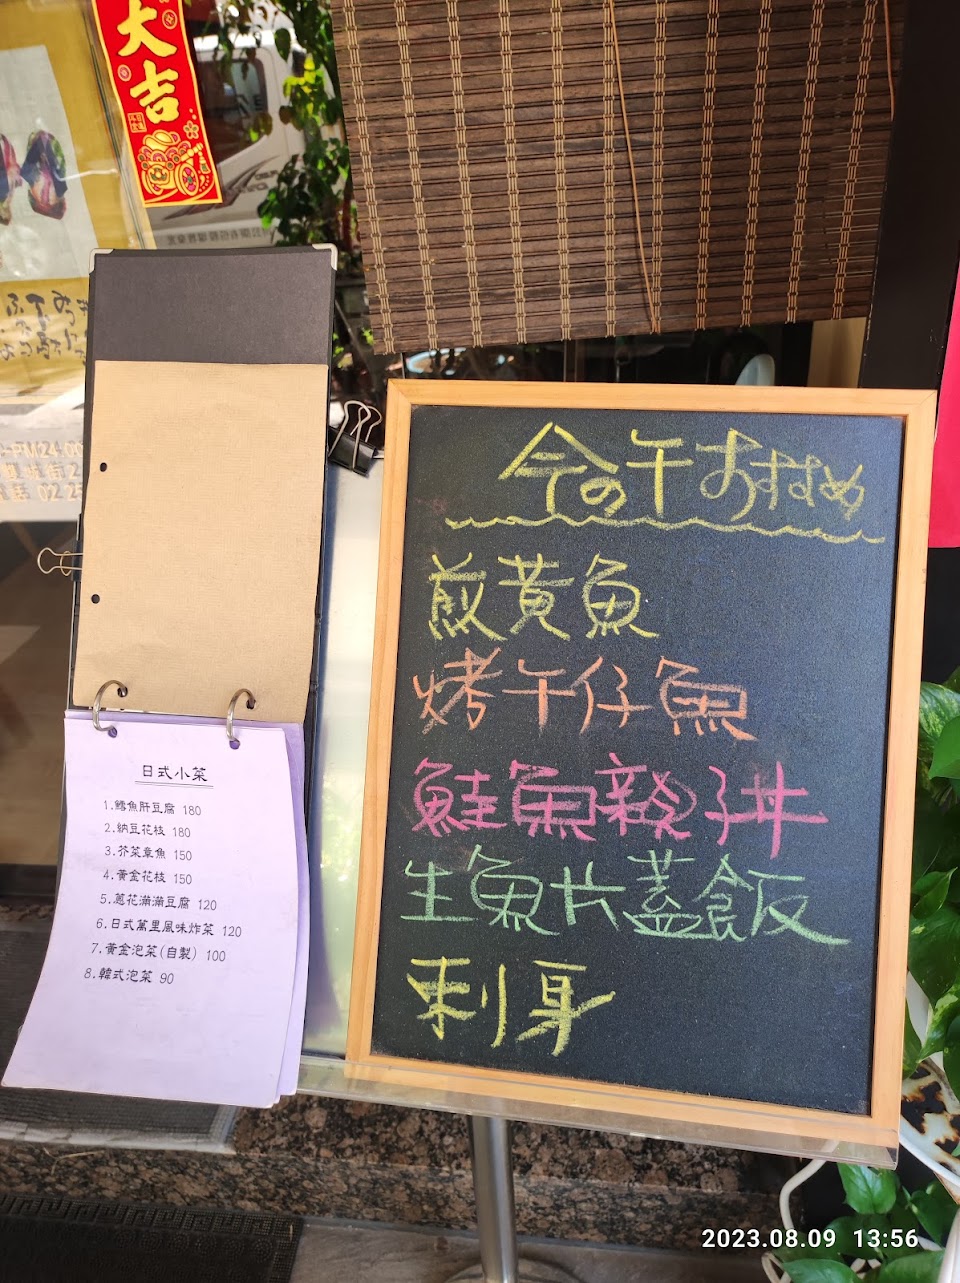 大吉
今の午おすすめ
煎黄魚
烤午仔魚
鮭魚親子丼
生魚片蓋飯
刺身
日式小菜
1.鱈魚肝豆腐 180
2.納豆花枝 180
3.芥菜章魚 150
4.黃金花枝 150
5.蔥花滿滿豆腐 120
6.日式萬里風味炸菜 120
7.黃金泡菜(自製) 100
8.韓式泡菜 90
2023.08.09 13:56